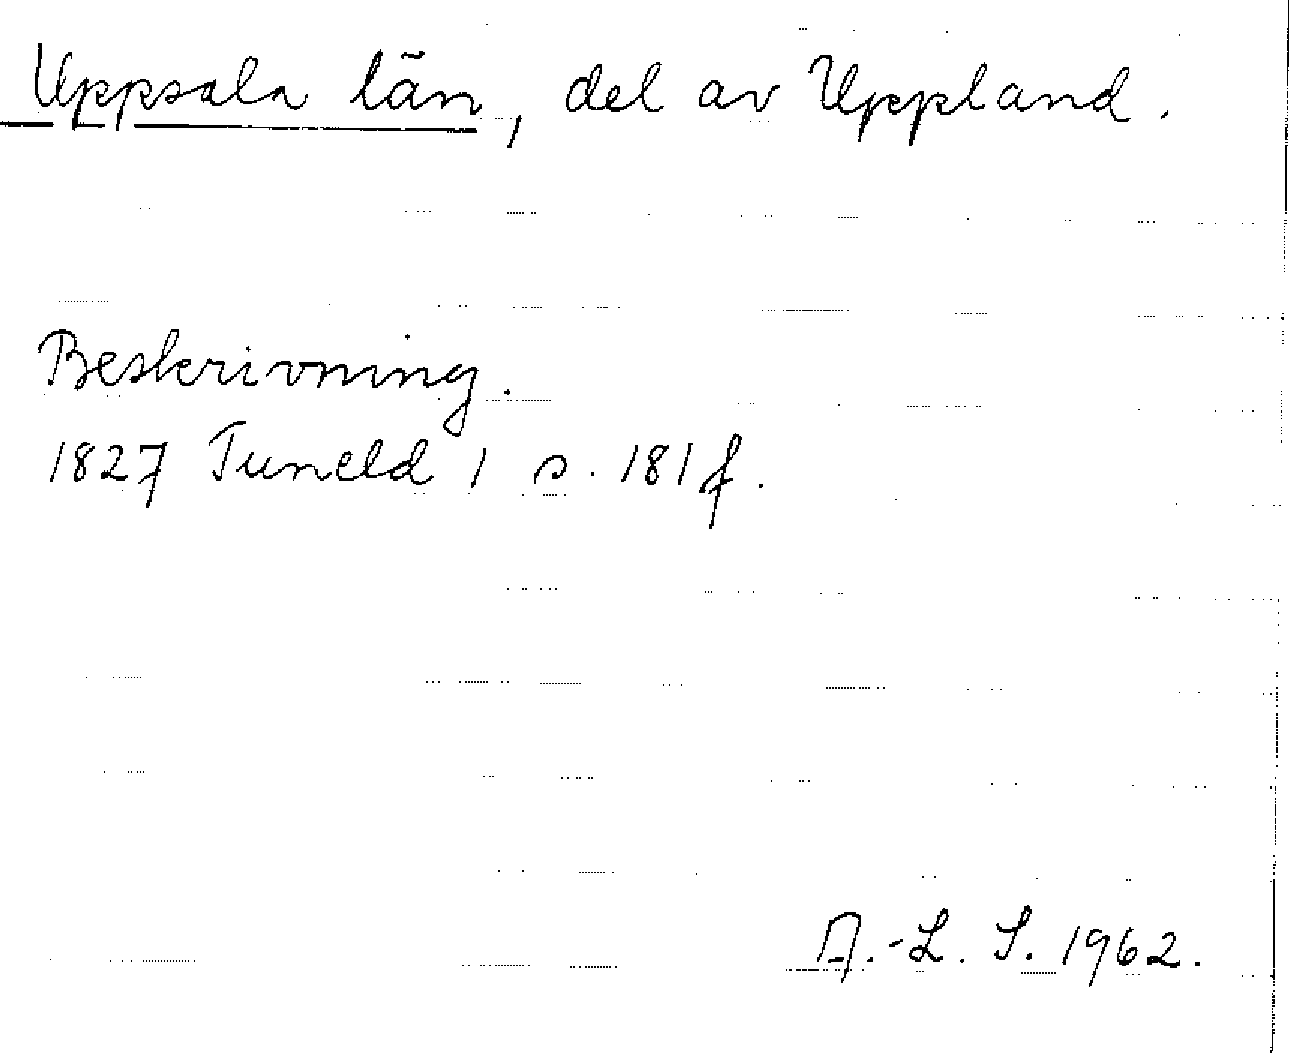 Uppsala län, del av Uppland.
Beskrivning.
1827 Tuneld 1 s. 181 f.
A.-L. S. 1962.